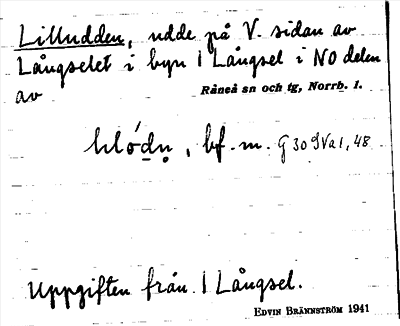 Lilludden, udde på V. sidan av
Långselet i byn 1 Långsel i NO delen
av
Råneå sn och tg, Norrb. l.
bf. m. G 30 9Va1, 48
Uppgiften från 1 Långsel.
EDVIN BRÄNNSTRÖM 1941